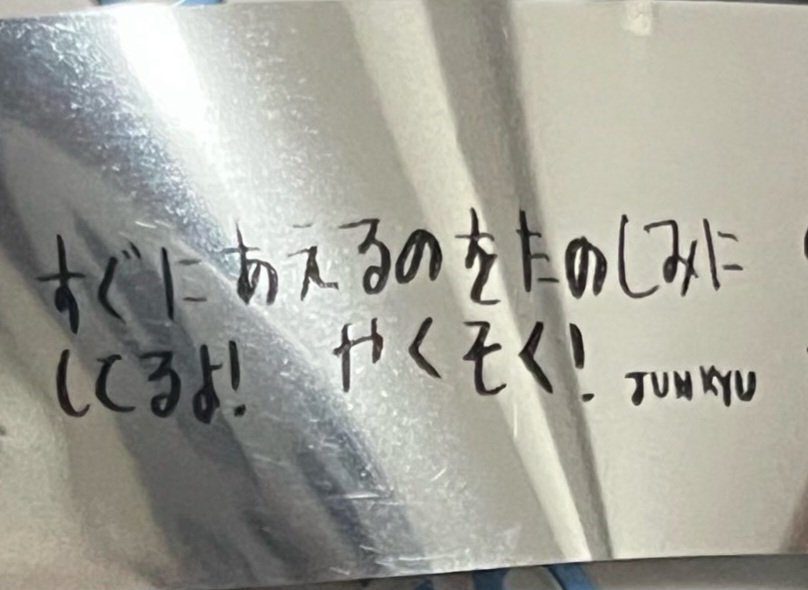 すぐにあえるのをたのしみに
してるよ! やくそく! JUNKYU